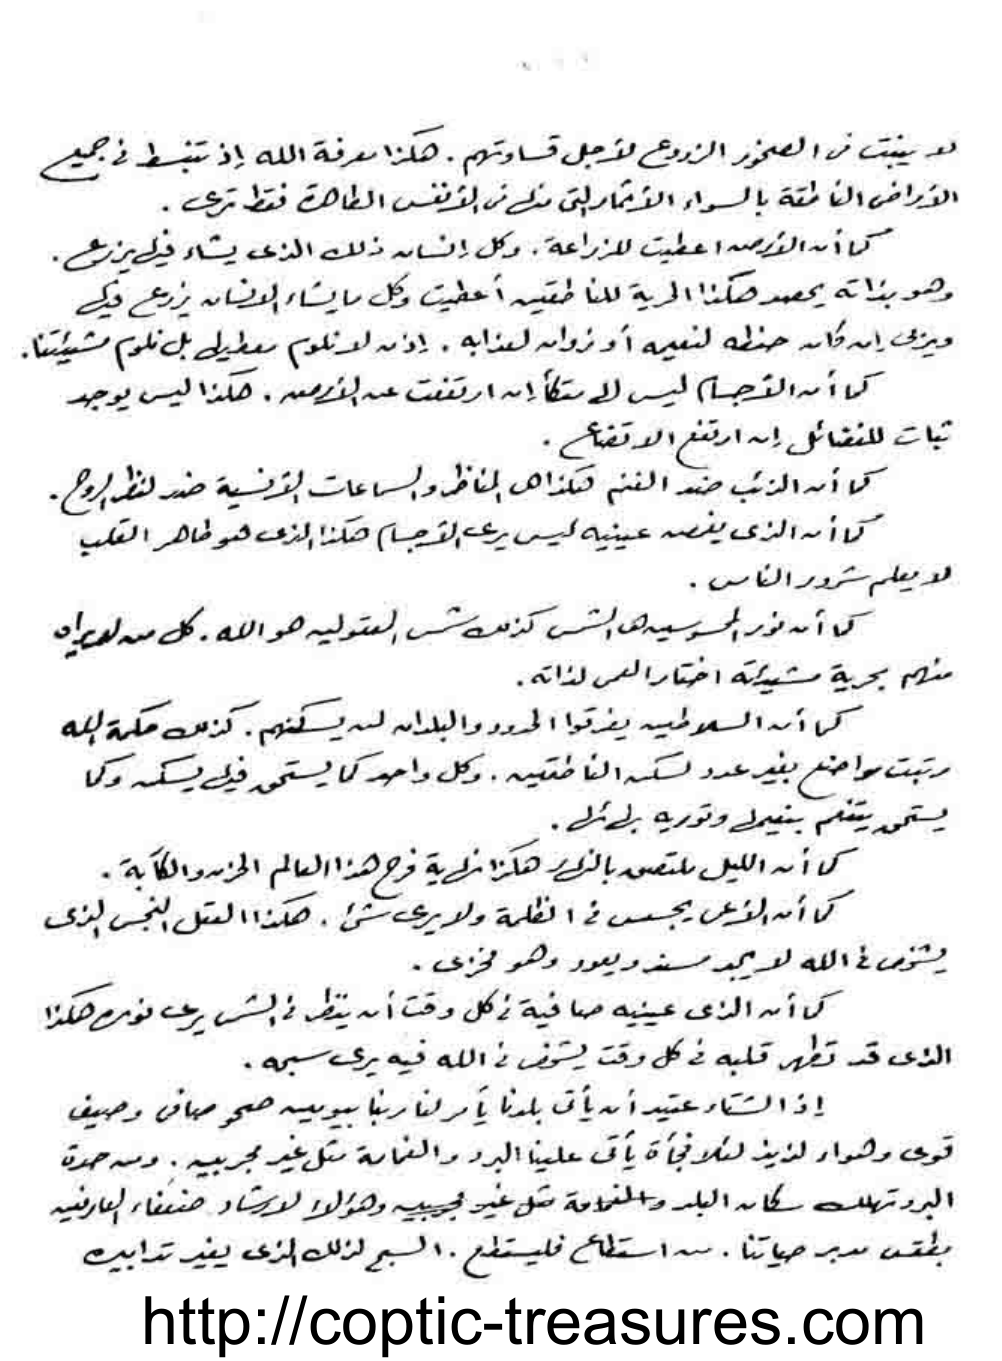 لا ينبت في الصخور الزروع لأجل قساوتهم . هكذا معرفة الله إذ تنبسط في جميع
الأراضى الناطقة بالسواء الأثمار التى منها في الأنفس الطاهرة فقط ترى .
كما أن الأرض اعطيت للزراعة . وكل إنسان ذلك الذى يشاء فيها يزرع .
وهو بذاته يحصد هكذا الحرية للناطقين أعطيت وكل ما يشاء الإنسان يزرع فيها
ويربى إن كان حنطه لنعيمه أو زوان لعذابه . إذن لا نلوم معطيها بل نلوم مشيئتنا .
كما أن الأجسام ليس لها متكأ إن ارتفعت عن الأرض . هكذا ليس يوجد
ثبات للفضائل إن ارتفع الاتضاع .
كما أن الذئب ضد الغنم هكذا هى المناظر والسماعات الأنسية ضد لنظر الروح .
كما أن الذى يغمض عينيه ليس يرى الأجسام هكذا الذى هو طاهر القلب
لا يعلم شرور الناس .
كما أن نور المحسوسين هى الشمس كذلك شمس العقوليين هو الله . كل من لا يراه
منهم بحرية مشيئته اختار العمى لذاته .
كما أن السلاطين يفرقوا الحدود والبلدان لمن يسكنهم . كذلك حكمة الله
رتبت مواضع بغير عدد لسكن الناطقين . وكل واحد كما يستحق فيها يسكن وكما
يستحق يتنعم بنعيمها ونوره بها .
كما أن الليل ملتصق بالنهار هكذا نهاية فرح هذا العالم الحزن والكآبة .
كما أن الأعمى يجسس في الظلمة ولا يرى شئ . هكذا العقل النجس الذى
يشخص في الله لا يجد مسند ويعود وهو مخزى .
كما أن الذى عينيه صافية في كل وقت أن ينظر في الشمس يرى نورها هكذا
الذى قد تطهر قلبه في كل وقت يشخص في الله فيه يرى سبحه .
إذا الشتاء عتيد أن يأتى بلدنا يأمر لنا ربنا بيومين صحو صافى وصيف
قوى وهواء لذيذ لئلا فجأة يأتى علينا البرد والغمامة مثل غير مجربين . ومن حدة
البرد تهلك سكان البلد والغمامة مثل غير مجربين وهؤلاء لارشاد ضعفاء العارفين
بطقس مدبر حياتنا . من استطاع فليستطع . السبح لذلك الذى بغير تدابيره
http://coptic-treasures.com